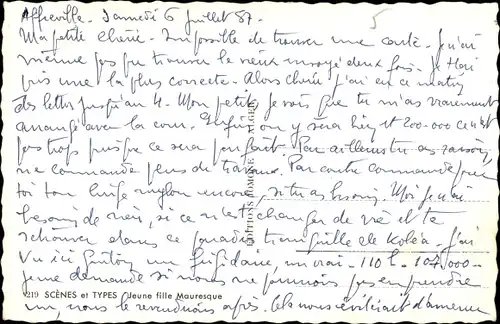 Affreville. Samedi 6 Juillet 57.
Ma petite chérie. Impossible de trouver une carte. Je n'ai
même pas pu trouver le vieux envoyé deux fois. Je t'en
mis une la plus correcte. Alors chérie j'ai eu ce matin
des lettres jusqu'au 4. Mon petit je vois que tu m'as vraiment
arrangé avec la cour. Enfin on y sera bien et 200.000 ce n'est
pas trop puisque ce sera parfait. Par ailleurs tu as raison,
ne commande plus de travaux. Par contre commande pour
toi ton linge nylon encore, si tu as besoin. Moi je n'ai
besoin de rien, si ce n'est changer de vie et te
retrouver dans ce paradis tranquille de Koléa. J'ai
vu ici Santoni un frigidaire, un vrai. 110 l. 104.000.
Je me demande si nous ne pourrions pas en prendre
un, nous le revendrions après. Cela nous éviterait d'amener
EDITIONS ALGER
9219 SCÈNES et TYPES Jeune fille Mauresque
5